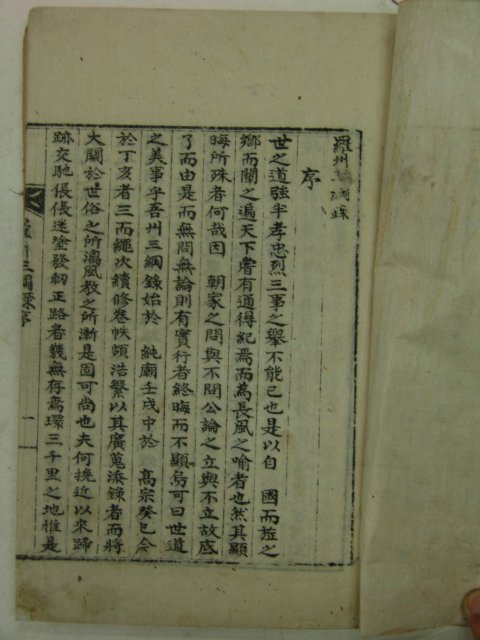 羅州三綱錄
序
世之道強半孝忠烈三事之舉不能已也是以自 國而旌之
鄉而闡之遍天下嘗有道得紀焉而為長風之喻者也然其顯
晦所殊者何哉因 朝家之問與不問公論之立與不立故底
了而由是而無問無論則有實行者終晦而不顯烏可曰世道
之美事乎吾州三綱錄始於 純廟壬戌中於 高宗癸巳今
於丁亥者三而繩次續修卷帙頗浩繁以其廣蒐添錄者而將
大關於世俗之所瀉風教之所漸是固可尚也夫何挽近以來蹄
跡交馳倀倀迷塗發軔正路者幾無存焉環三千里之地惟是
羅州三綱錄序
一